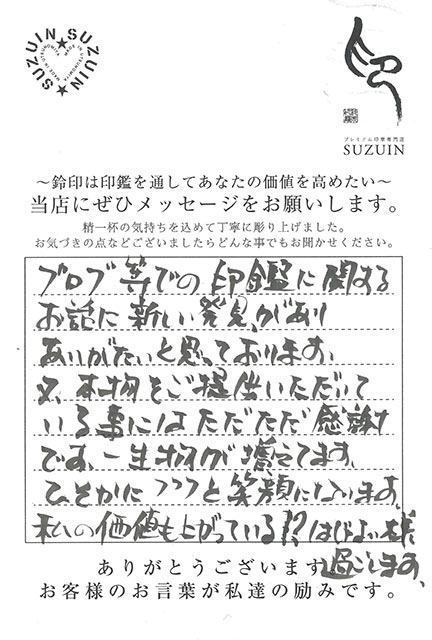 SUZUIN★SUZUIN★
プレミアム印章専門店
SUZUIN
～鈴印は印鑑を通してあなたの価値を高めたい～
当店にぜひメッセージをお願いします。
精一杯の気持ちを込めて丁寧に彫り上げました。
お気づきの点などございましたらどんな事でもお聞かせください。
ブログ等での印鑑に関する
お話に新しい発見があり
ありがたいと思っております、
又、本物をご提供いただいて
いる事にはただただ感謝
です、一生物が増えてます、
ひそかにフフフと笑顔になります、
私の価値も上がっている!?
ありがとうございます
お客様のお言葉が私達の励みです。